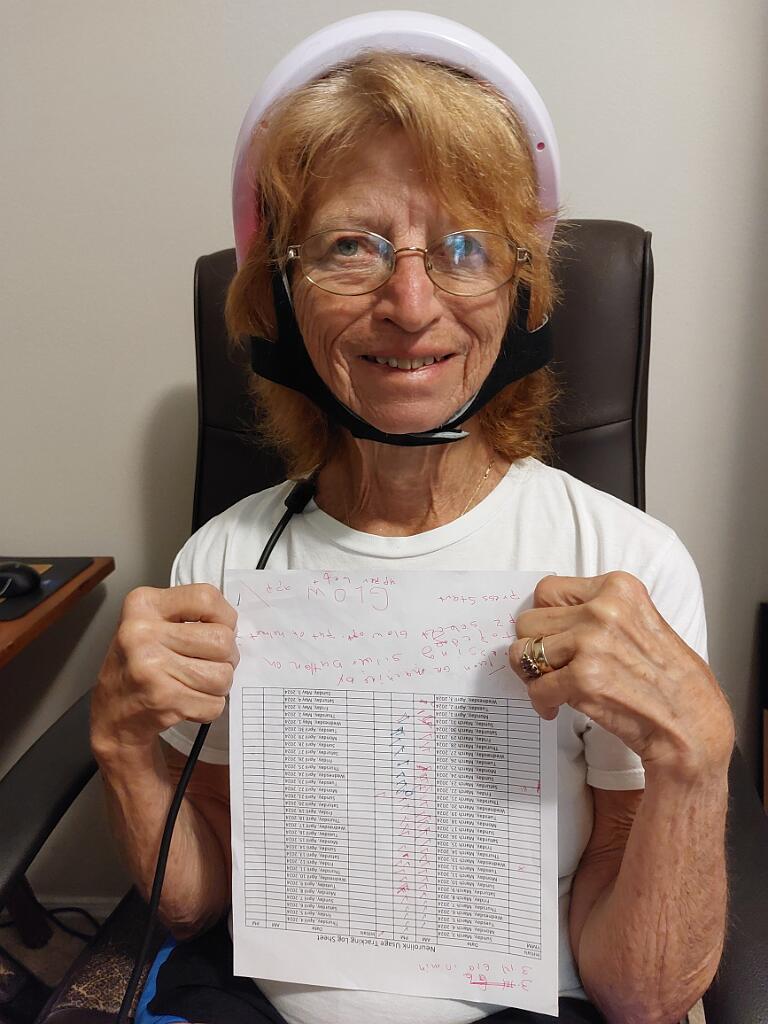 Neurolink Usage Tracking Log Sheet
Initials Date AM PM Initials Date AM PM
Sunday, March 3, 2024 Thursday, April 4, 2024
Monday, March 4, 2024 Friday, April 5, 2024
Tuesday, March 5, 2024 Saturday, April 6, 2024
Wednesday, March 6, 2024 Sunday, April 7, 2024
Thursday, March 7, 2024 Monday, April 8, 2024
Friday, March 8, 2024 Tuesday, April 9, 2024
Saturday, March 9, 2024 Wednesday, April 10, 2024
Sunday, March 10, 2024 Thursday, April 11, 2024
Monday, March 11, 2024 Friday, April 12, 2024
Tuesday, March 12, 2024 Saturday, April 13, 2024
Wednesday, March 13, 2024 Sunday, April 14, 2024
Thursday, March 14, 2024 Monday, April 15, 2024
Friday, March 15, 2024 Tuesday, April 16, 2024
Saturday, March 16, 2024 Wednesday, April 17, 2024
Sunday, March 17, 2024 Thursday, April 18, 2024
Monday, March 18, 2024 Friday, April 19, 2024
Tuesday, March 19, 2024 Saturday, April 20, 2024
Wednesday, March 20, 2024 Sunday, April 21, 2024
Thursday, March 21, 2024 Monday, April 22, 2024
Friday, March 22, 2024 Tuesday, April 23, 2024
Saturday, March 23, 2024 Wednesday, April 24, 2024
Sunday, March 24, 2024 Thursday, April 25, 2024
Monday, March 25, 2024 Friday, April 26, 2024
Tuesday, March 26, 2024 Saturday, April 27, 2024
Wednesday, March 27, 2024 Sunday, April 28, 2024
Thursday, March 28, 2024 Monday, April 29, 2024
Friday, March 29, 2024 Tuesday, April 30, 2024
Saturday, March 30, 2024 Wednesday, May 1, 2024
Sunday, March 31, 2024 Thursday, May 2, 2024
Monday, April 1, 2024 Friday, May 3, 2024
Tuesday, April 2, 2024 Saturday, May 4, 2024
Wednesday, April 3, 2024 Sunday, May 5, 2024
Turn on machine by
using silver button on
select Glow app put on helmet
Press Start GLOW app
upper left